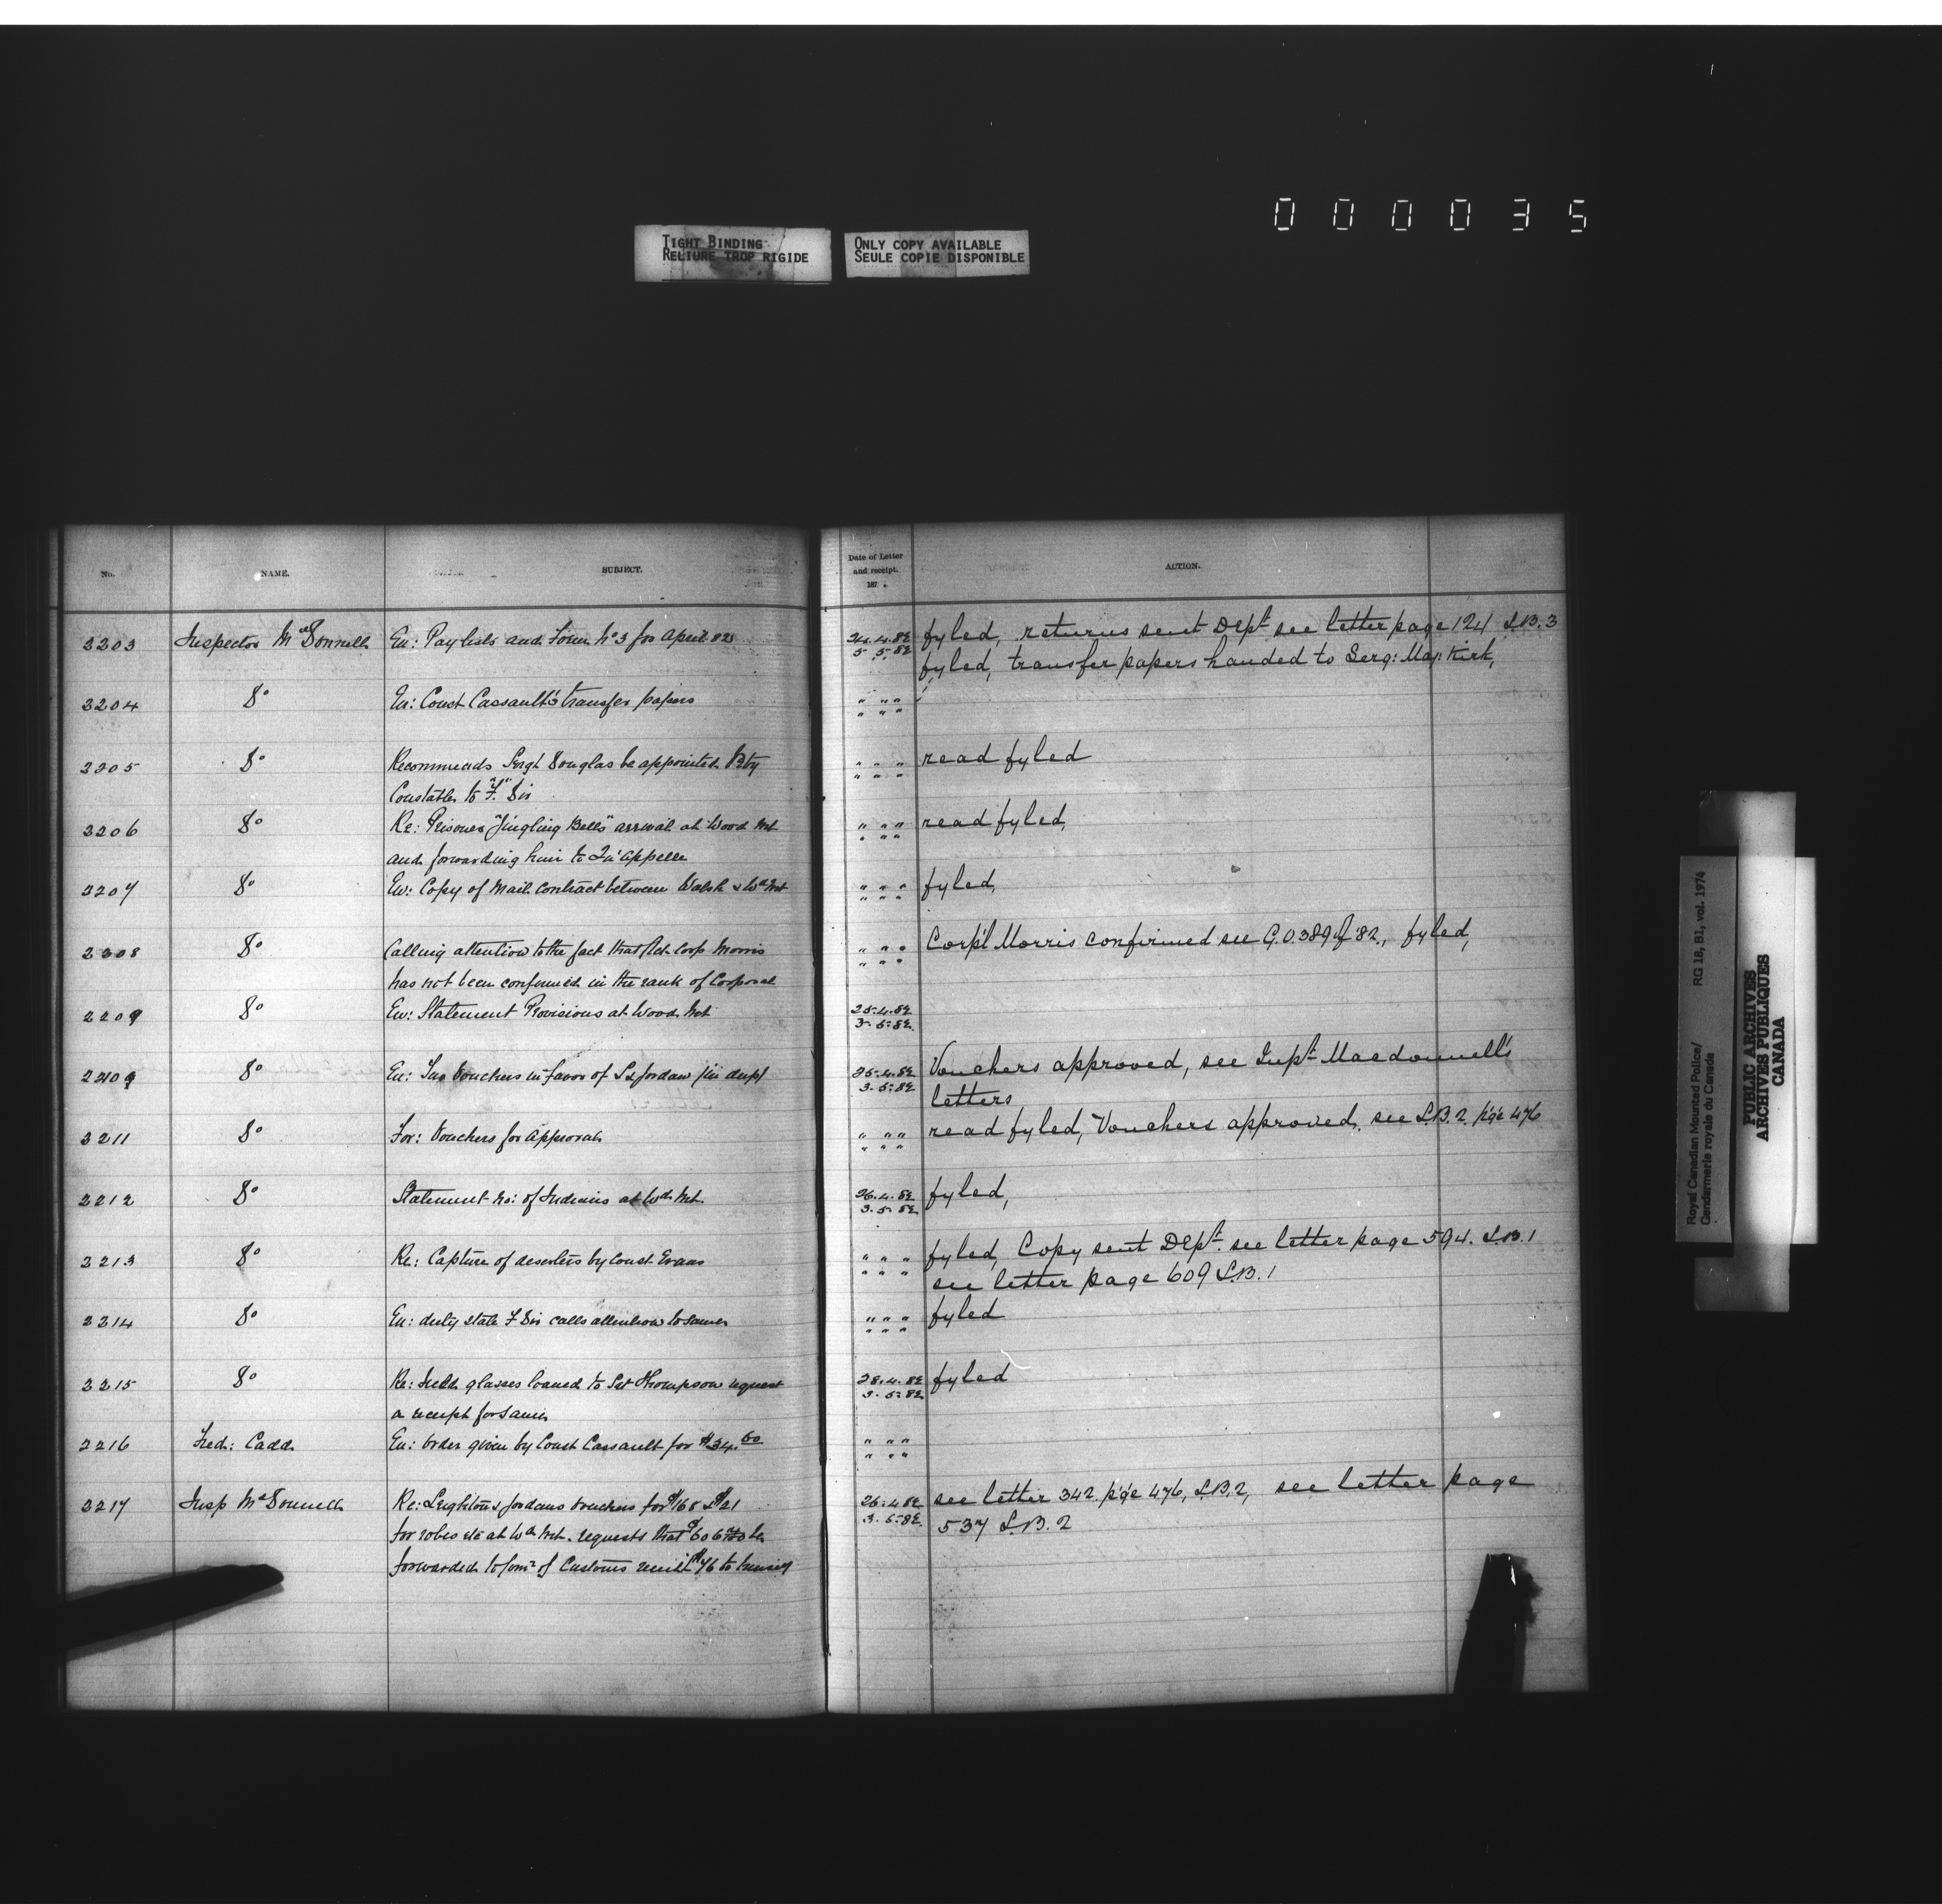 000035
TIGHT BINDING
RELIURE TROP RIGIDE
ONLY COPY AVAILABLE
SEULE COPIE DISPONIBLE
No. NAME. SUBJECT. Date of Letter and receipt. 187 . ACTION.
2203 Inspector McDonnell En: Pay lists and Form No 3 for April 82 24.4.82 fyled, returns sent Dept. see letter page 124 L.B. 3
5.5.82 fyled, transfer papers handed to Serg: Maj: Kirk,
2204 Do En: Const Cassault's transfer papers " " "
" " "
2205 Do Recommends Sergt Douglas be appointed Pty " " " read fyled
Constable to "F" Div " " "
2206 Do Re: Prisoner "Jingling Bells" arrival at Wood Mt " " " read fyled,
and forwarding him to Qu'Appelle " " "
2207 Do En: Copy of Mail Contract between Walsh & Wd Mt " " " fyled,
" " "
2208 Do Calling attention to the fact that Act. Corp Morris " " " Corp'l Morris confirmed see G.O. 389 of 82, fyled,
has not been confirmed in the rank of Corporal " " "
2209 Do En: Statement Provisions at Wood Mt 25.4.82
3.5.82.
Do En: Vouchers in favor of Jordan 25.4.82 Vouchers approved, see Inpt. Macdonnell's
3.5.82 letters
2211 Do For: Vouchers for Approval " " " read fyled, Vouchers approved, see L.B. 2. p'g'e 476
" " "
2212 Do Statement no: of Indians at Wd Mt. 26.4.82 fyled,
3.5.82
2213 Do Re: Capture of deserters by Const Evans " " " fyled, Copy sent Dept. see letter page 594. L.B. 1
" " " see letter page 609 L.B. 1
2214 Do En: duty state F Div calls attention to same " " " fyled
" " "
2215 Do Re: Field glasses loaned to Thompson request 28.4.82 fyled
a receipt for same 3.5.82
2216 Fred: Cadd En: order given by Const Cassault for $34.60 " " "
" " "
2217 Insp McDonnell Re: Leighton & Jordans vouchers for $168 & $21 26.4.82 see letter 342. p'g'e 476, L.B. 2, see letter page
for robes etc at Wd Mt. requests that be 3.5.82. 537 L.B. 2
forwarded to Com of Customs to himself
Royal Canadian Mounted Police/ RG 18, B1, vol. 1974
Gendarmerie royale du Canada
PUBLIC ARCHIVES
ARCHIVES PUBLIQUES
CANADA